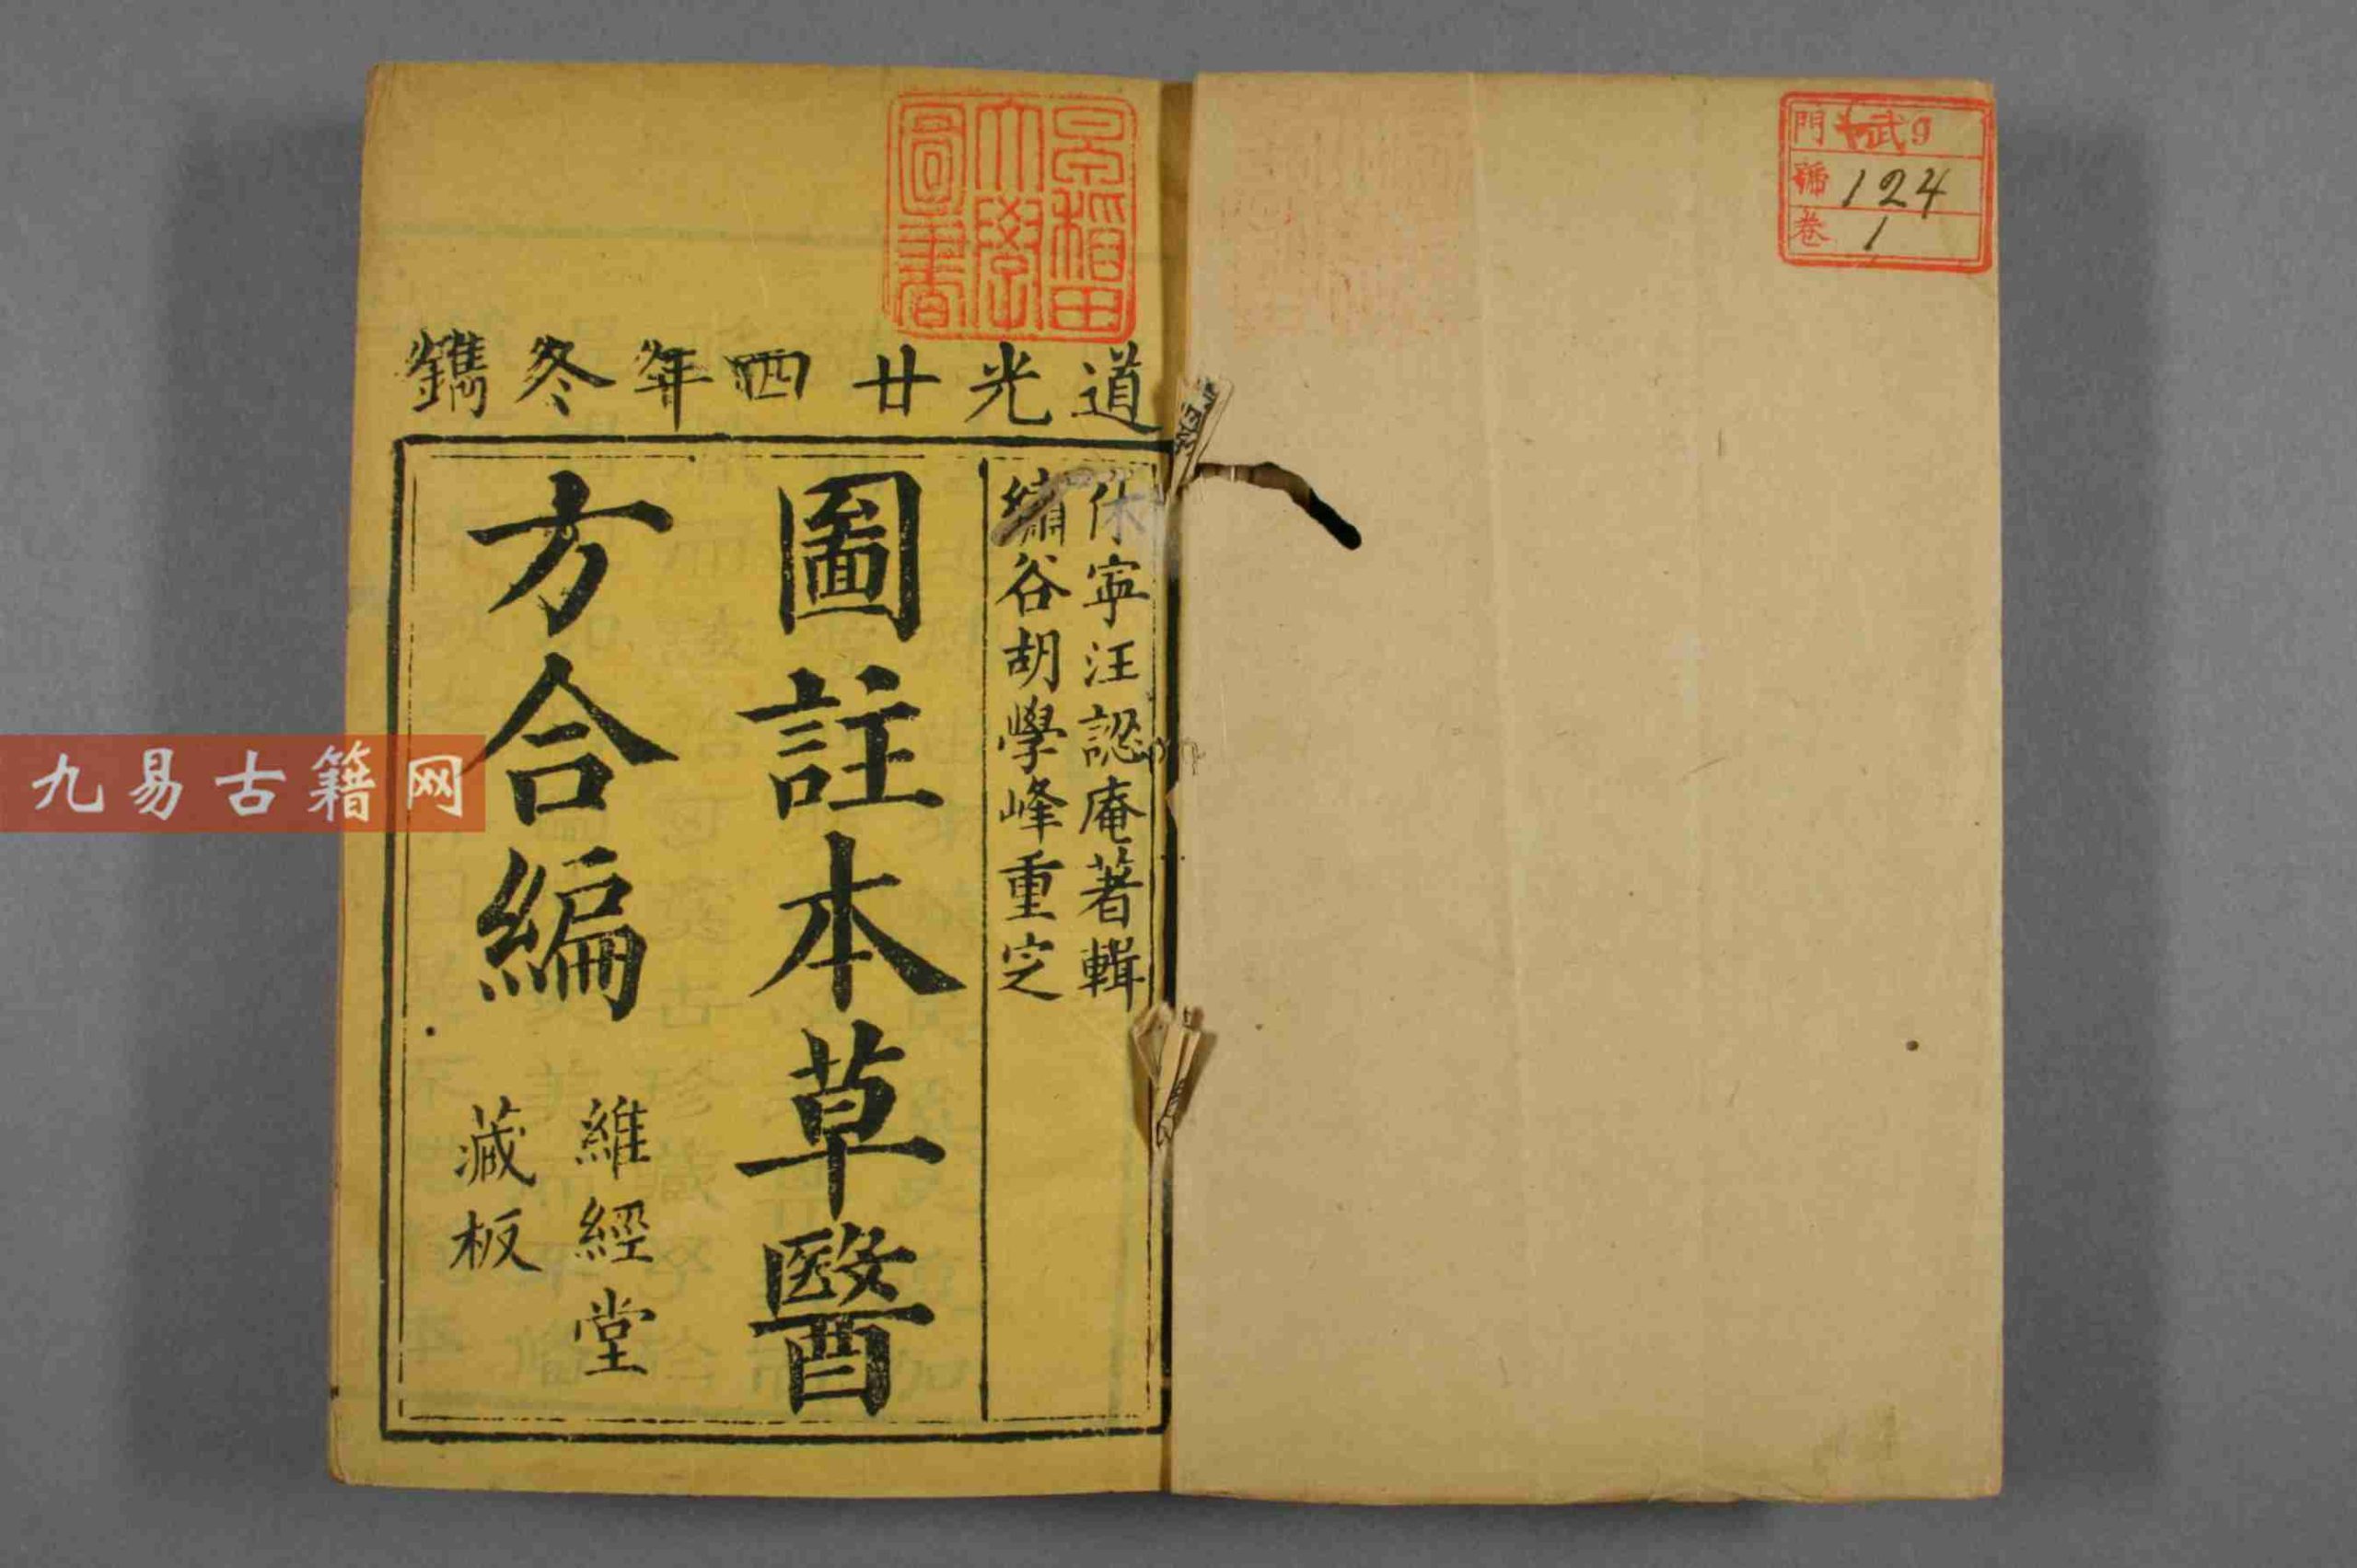 門 武9
號 124
卷 1
早稲田
大學
圖書
道光廿四年冬鐫
休寧汪訒庵著輯
繡谷胡學峰重定
圖註本草醫
方合編
維經堂
藏板
九易古籍网